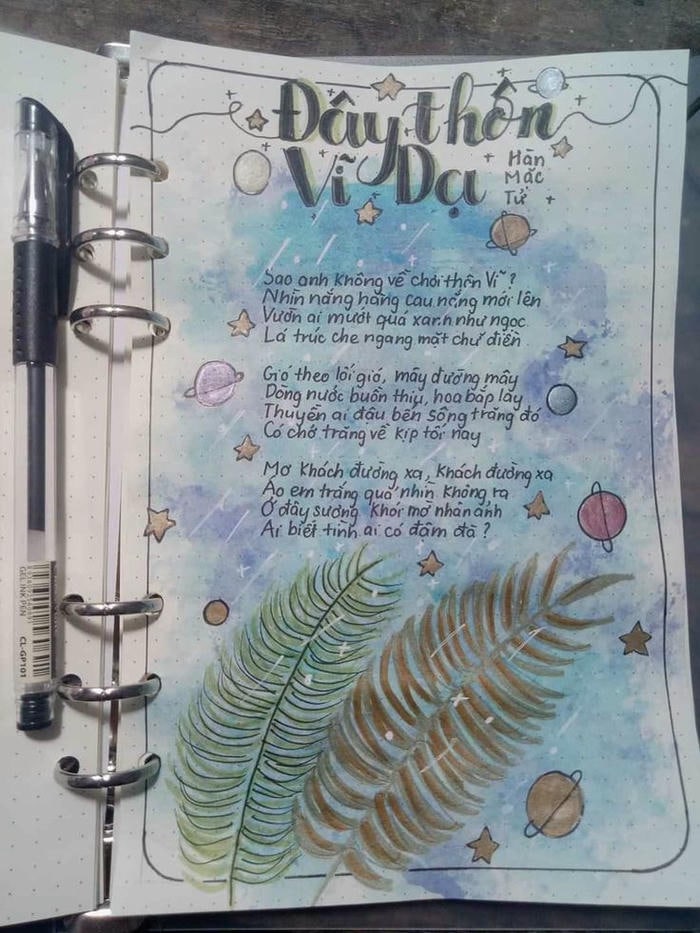 Đây thôn
Vĩ Dạ
Hàn
Mặc
Tử
Sao anh không về chơi thôn Vĩ?
Nhìn nắng hàng cau nắng mới lên
Vườn ai mướt quá xanh như ngọc
Lá trúc che ngang mặt chữ điền
Gió theo lối gió, mây đường mây
Dòng nước buồn thiu, hoa bắp lay
Thuyền ai đậu bến sông trăng đó
Có chở trăng về kịp tối nay
Mơ khách đường xa, khách đường xa
Áo em trắng quá nhìn không ra
Ở đây sương khói mờ nhân ảnh
Ai biết tình ai có đậm đà?
GEL INK PEN
CL-GP101